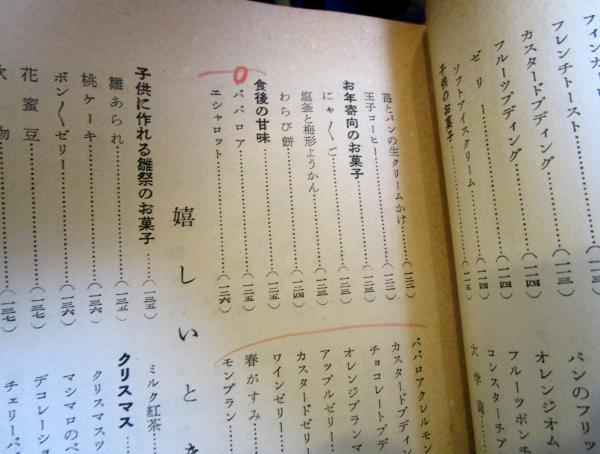 フレンチトースト………(一一三)
カスタードプディング………(一一三)
フルーツプディング………(一一四)
ゼリー………(一一四)
ソフトアイスクリーム………(一一五)
子供のお菓子
パンのフリッ
オレンジオム
フルーツポンチ
コンスターチア
大学
苺とパンの生クリームかけ………(一二一)
王子コーヒー………(一二二)
お年寄向のお菓子………(一二三)
にゃ〳〵ご………(一二三)
塩釜と梅形ようかん………(一二四)
わらび餅………(一二五)
食後の甘味
ババロア………(一二五)
エシャロット………(一二六)
ババロアクレルモン
カスタードプディン
チョコレートプデ
オレンジブランマ
アップルゼリー
カスタードゼリー
ワインゼリー
春がすみ
モンブラン
嬉しいと
子供に作れる雛祭のお菓子………(一三五)
雛あられ………(一三五)
桃ケーキ………(一三六)
ボン〳〵ゼリー………(一三六)
花蜜豆………(一三七)
物………(一三七)
ミルク紅茶
クリスマス
クリスマスツ
マシマロのペ
デコレーショ
チェリーパ